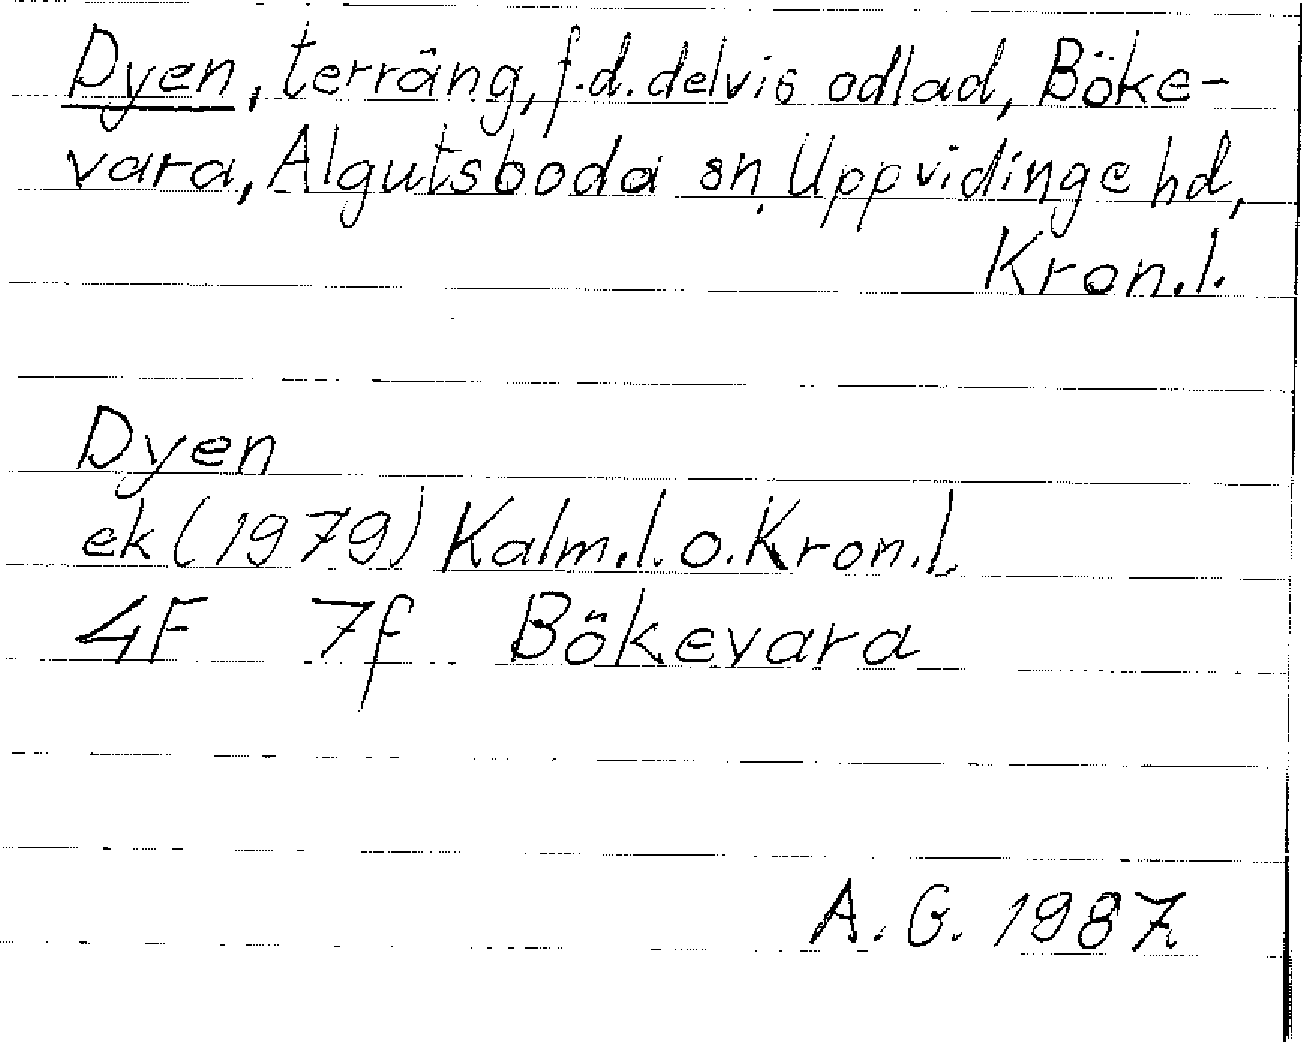 Dyen, terräng, f.d. delvis odlad, Böke-
vara, Algutsboda sn, Uppvidinge hd,
Kron.l.
Dyen
ek (1979) Kalm.l. o. Kron.l.
4F 7f Bökevara
A. G. 1987